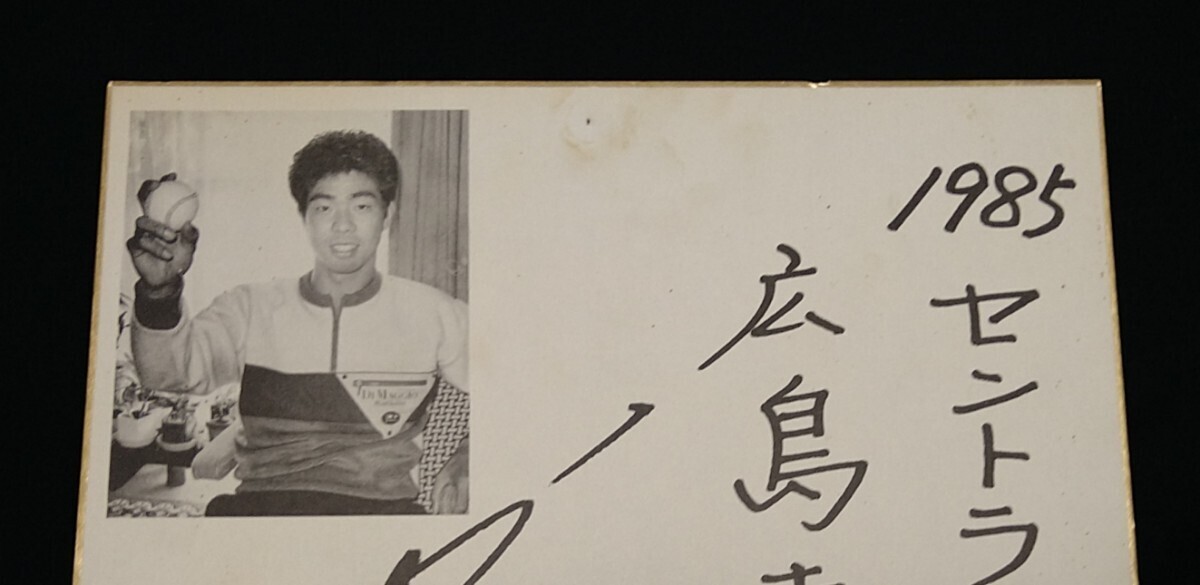 1985
セントラ
広島
DiMAGGIO